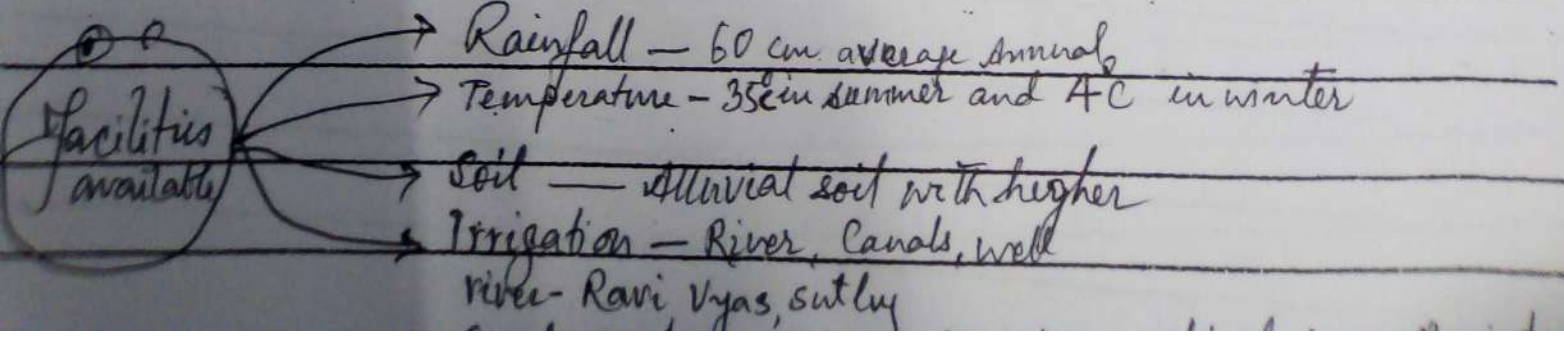 Facilities
available
Rainfall — 60 cm average Annual
Temperature - 35°C in summer and 4°C in winter
Soil — Alluvial soil with higher
Irrigation — River, Canals, well
river - Ravi, Vyas, sutluj